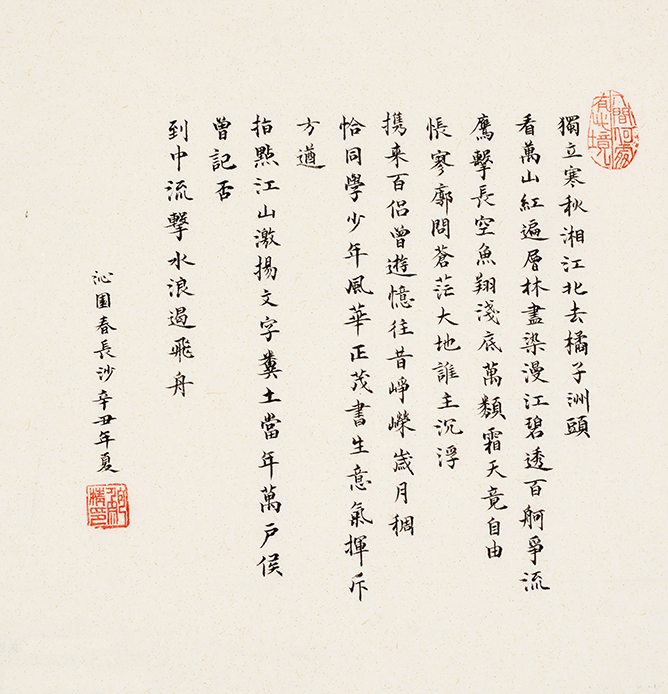 獨立寒秋湘江北去橘子洲頭
看萬山紅遍層林盡染漫江碧透百舸爭流
鷹擊長空魚翔淺底萬類霜天竟自由
悵寥廓問蒼茫大地誰主沉浮
携来百侣曾遊憶往昔崢嶸歲月稠
恰同學少年風華正茂書生意氣揮斥
方遒
指點江山激揚文字糞土當年萬戶侯
曾記否
到中流擊水浪遏飛舟
沁園春長沙辛丑年夏